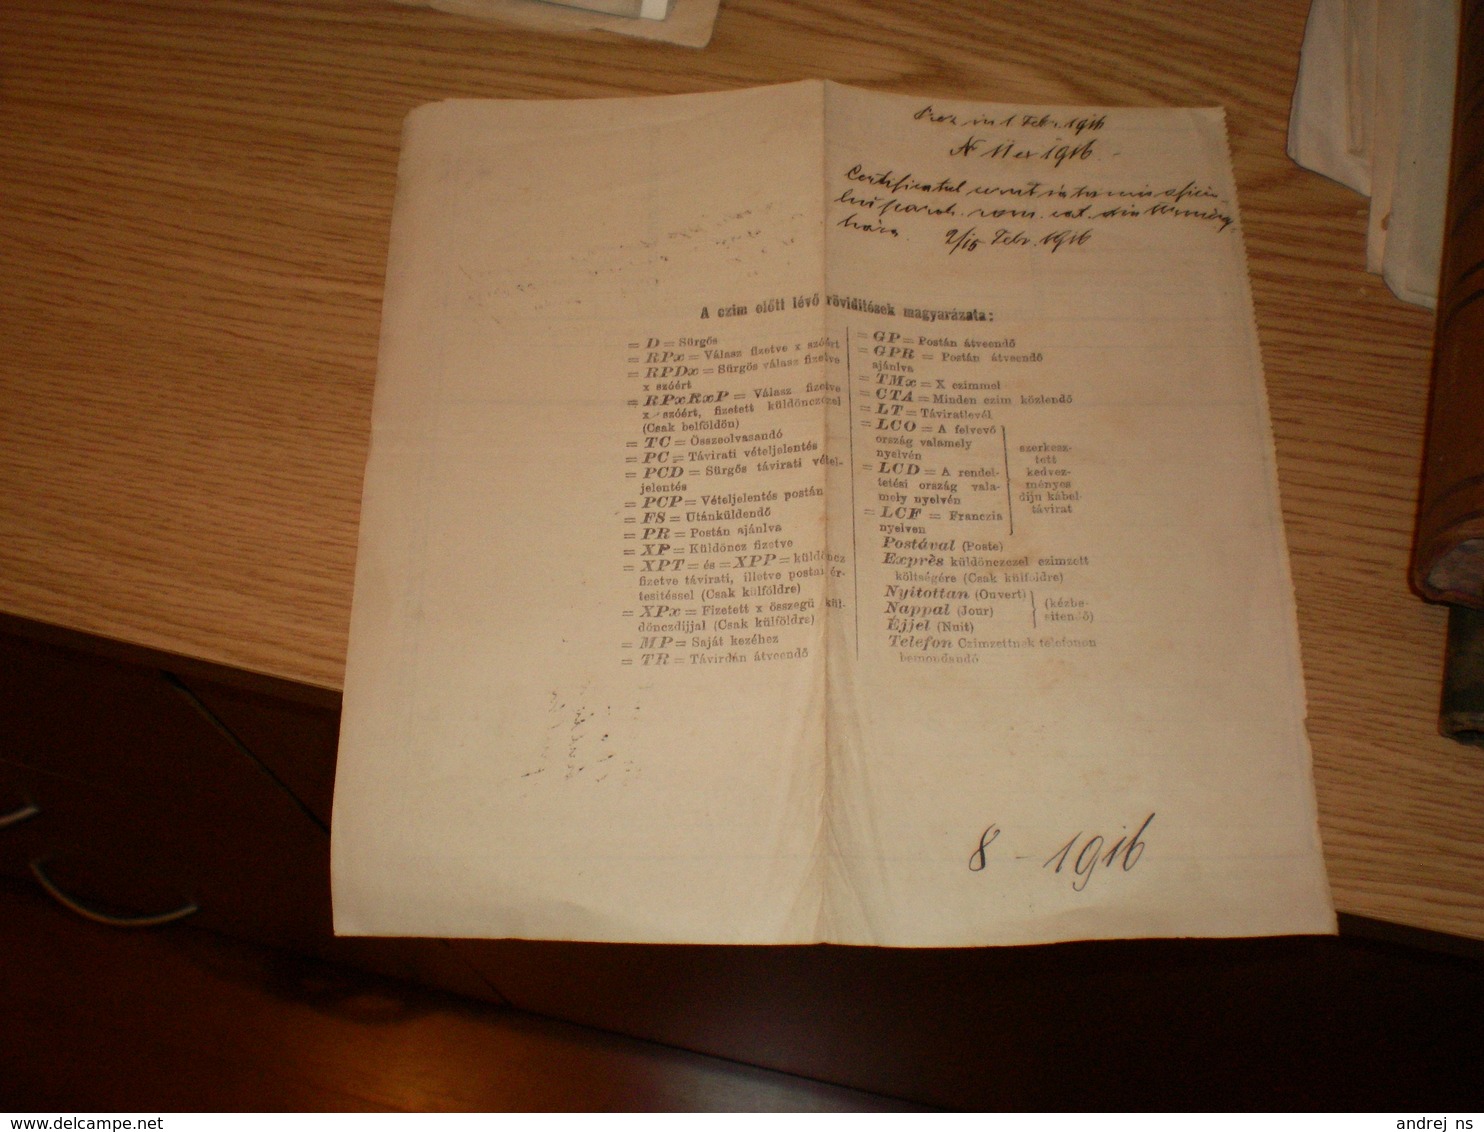 in 1 Febr. 1916
N 11 ex 1916
Certificatul cerut
paroh. rom. cat. din
2/15 Febr. 1916
A czim előtt lévő rövidítések magyarázata:
= D = Sürgős
= RPx = Válasz fizetve x szóért
= RPDx = Sürgős válasz fizetve
x szóért
= RPxRxP = Válasz fizetve
x szóért, fizetett küldönczczel
(Csak belföldön)
= TC = Összeolvasandó
= PC = Távirati vételjelentés
= PCD = Sürgős távirati vétel-
jelentés
= PCP = Vételjelentés postán
= FS = Utánküldendő
= PR = Postán ajánlva
= XP = Küldöncz fizetve
= XPT = és = XPP = küldöncz
fizetve távirati, illetve postai ér-
tesítéssel (Csak külföldre)
= XPx = Fizetett x összegű kül-
dönczdíjjal (Csak külföldre)
= MP = Saját kezéhez
= TR = Távirdán átveendő
= GP = Postán átveendő
= GPR = Postán átveendő
ajánlva
= TMx = X czimmel
= CTA = Minden czim közlendő
= LT = Táviratlevél
= LCO = A felvevő
ország valamely
nyelvén
= LCD = A rendel-
tetési ország vala-
mely nyelvén
= LCF = Franczia
nyelven
szerkesz-
tett
kedvez-
ményes
díju kábel-
távirat
Postával (Poste)
Exprès küldönczczel czimzett
költségére (Csak külföldre)
Nyitottan (Ouvert)
Nappal (Jour)
Éjjel (Nuit)
(kézbe-
sitendő)
Telefon Czimzettnek telefonon
bemondandó
8 - 1916
andrej ns